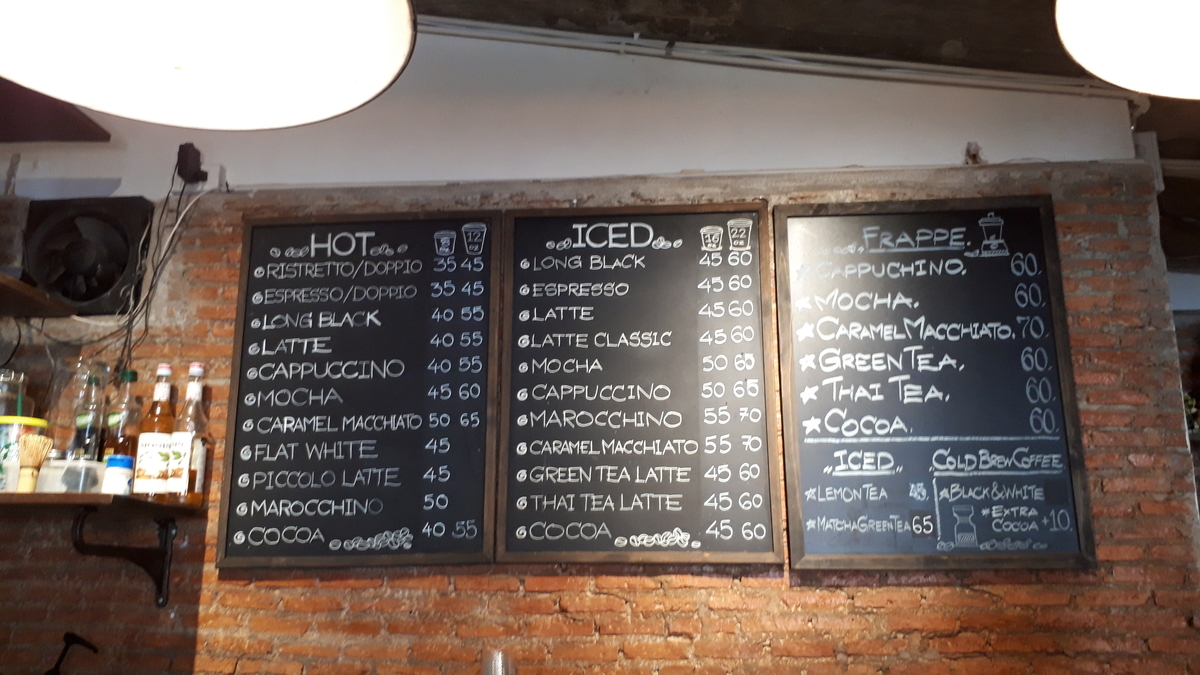 HOT 8 oz 12 oz
RISTRETTO/DOPPIO 35 45
ESPRESSO/DOPPIO 35 45
LONG BLACK 40 55
LATTE 40 55
CAPPUCCINO 40 55
MOCHA 45 60
CARAMEL MACCHIATO 50 65
FLAT WHITE 45
PICCOLO LATTE 45
MAROCCHINO 50
COCOA 40 55
ICED 16 oz 22 oz
LONG BLACK 45 60
ESPRESSO 45 60
LATTE 45 60
LATTE CLASSIC 45 60
MOCHA 50 65
CAPPUCCINO 50 65
MAROCCHINO 55 70
CARAMEL MACCHIATO 55 70
GREEN TEA LATTE 45 60
THAI TEA LATTE 45 60
COCOA 45 60
FRAPPE.
CAPPUCHINO. 60.
MOCHA. 60.
CARAMEL MACCHIATO. 70.
GREEN TEA. 60.
THAI TEA. 60.
COCOA. 60.
ICED
LEMON TEA 45.
MATCHA GREEN TEA 65
COLD BREW COFFEE
BLACK & WHITE
EXTRA
COCOA +10.